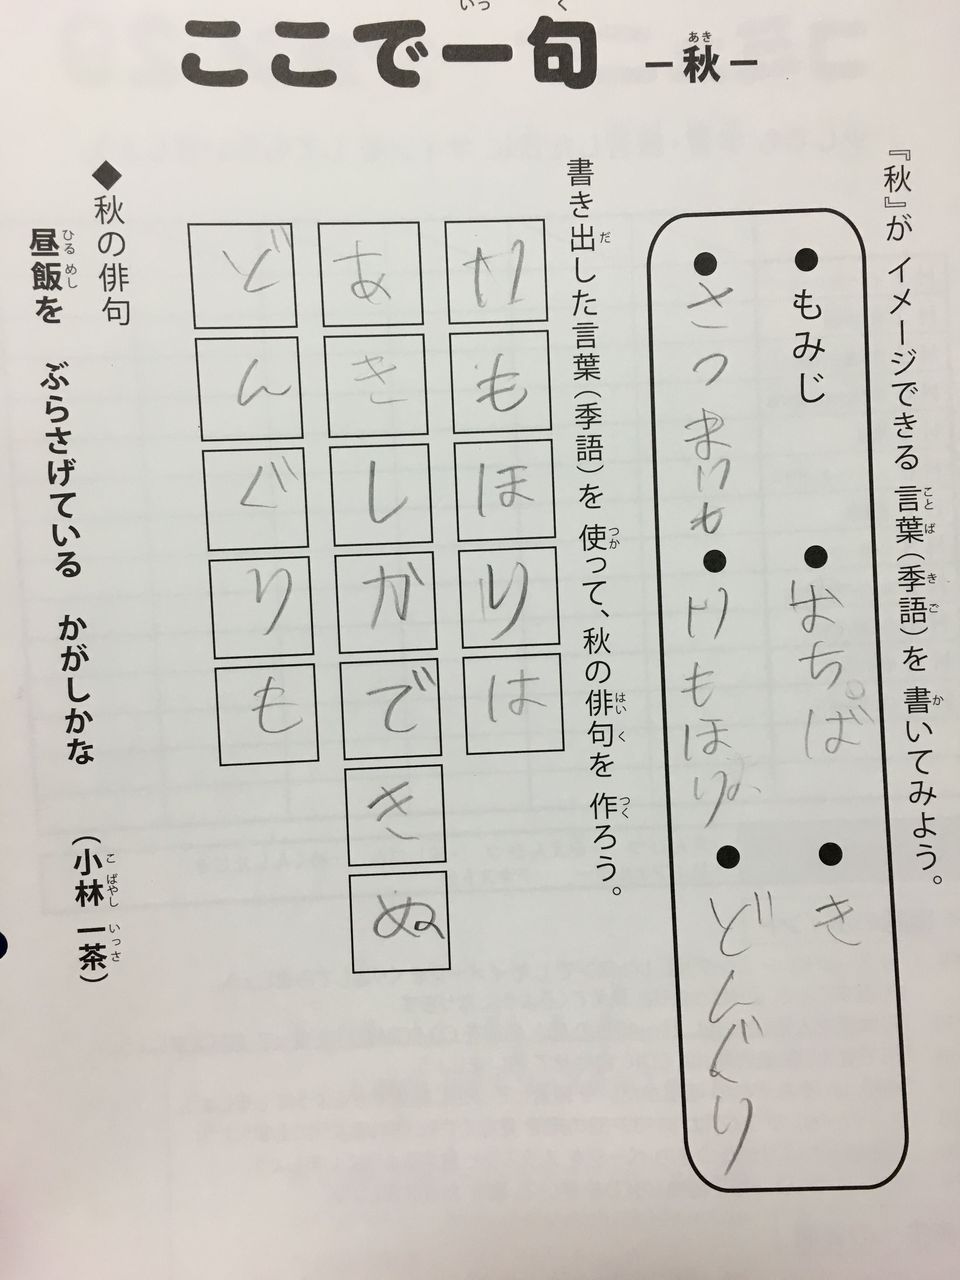 ここで一句 ー秋ー
『秋』が イメージできる 言葉(季語)を 書いてみよう。
●もみじ ●おちば ●き
●さつまいも ●いもほり ●どんぐり
書き出した言葉(季語)を 使って、秋の俳句を 作ろう。
いもほりは
あきしかできぬ
どんぐりも
◆秋の俳句
昼飯を ぶらさげている かがしかな (小林 一茶)